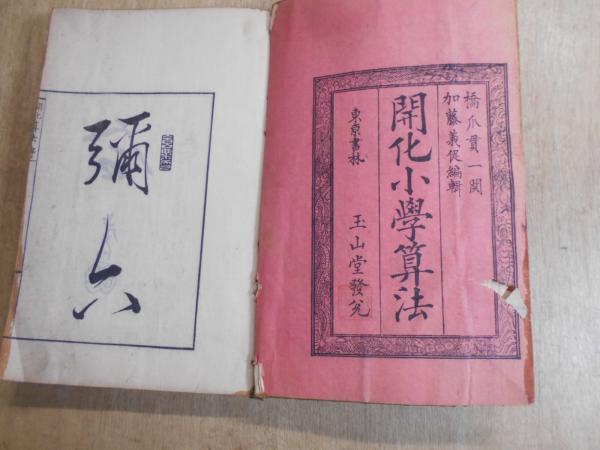 橋爪貫一閲
加藤義促編輯
開化小學算法
東京書林 玉山堂發兌
彌六